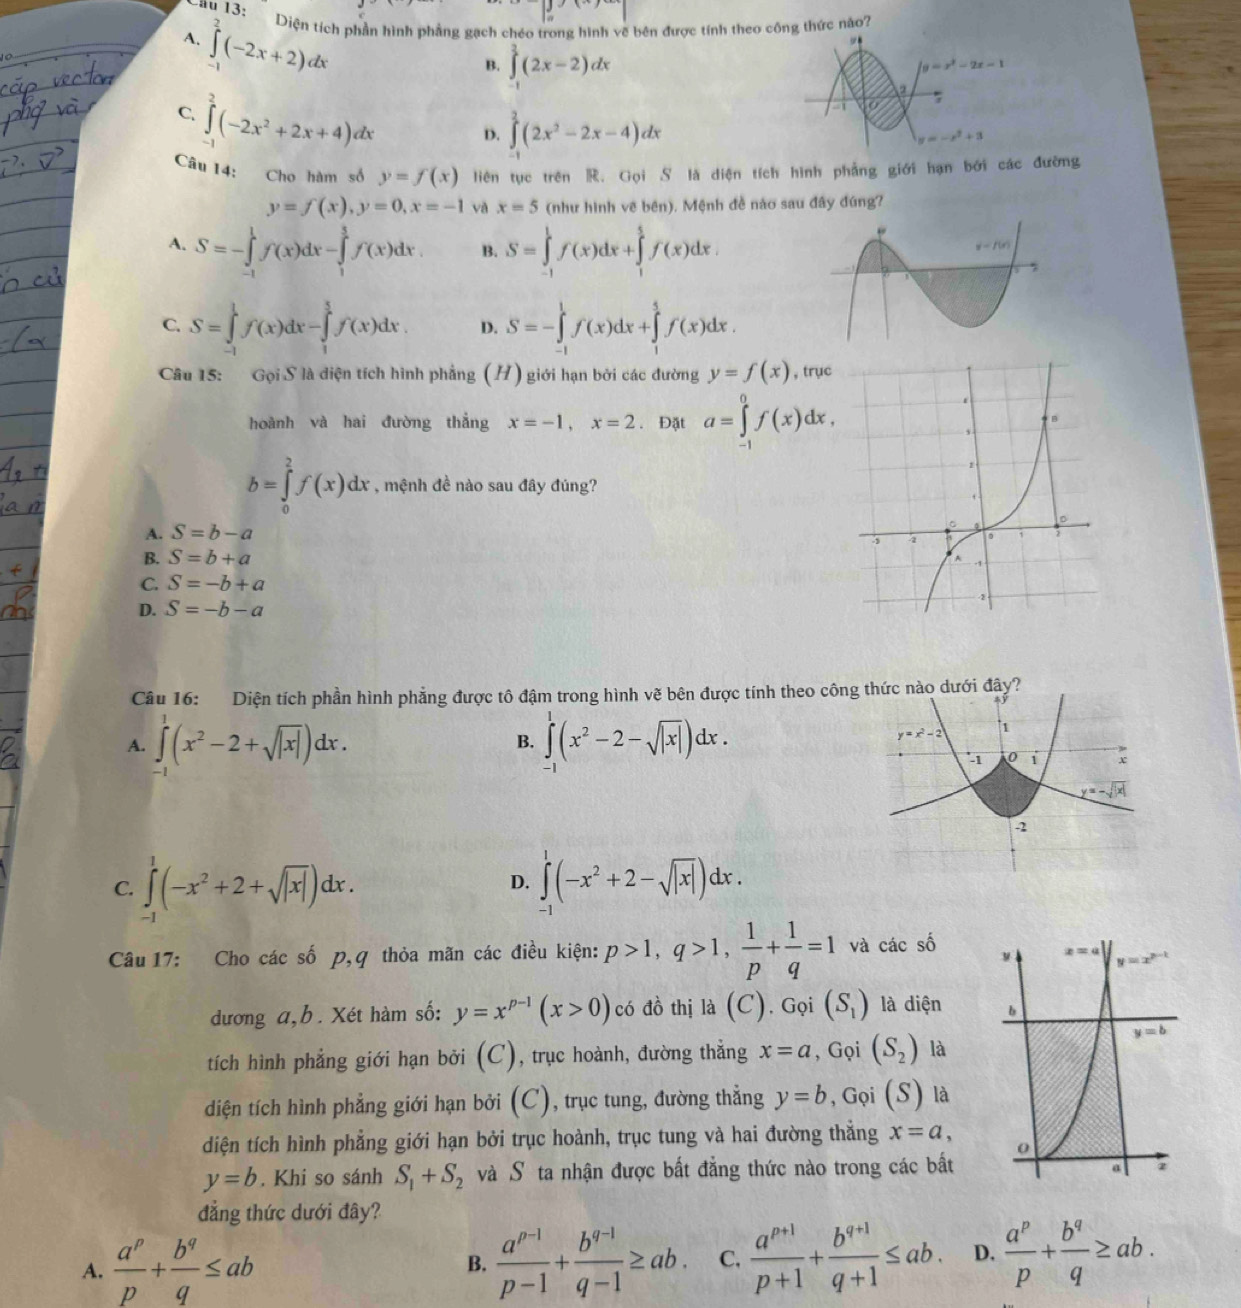 Câu 13: Diện tích phần hình phẳng gạch chéo trong hình vẽ bên được tính theo công thức nào?
A. \int_{-1}^{2}(-2x+2)dx B. \int_{-1}^{2}(2x-2)dx
C. \int_{-1}^{2}(-2x^2+2x+4)dx D. \int_{-1}^{2}(2x^2-2x-4)dx
y=x^2-2x-1
y=-x^2+3
cấp vector
Câu 14: Cho hàm số y=f(x) liên tục trên ℝ. Gọi S là diện tích hình phẳng giới hạn bới các đường
y=f(x), y=0, x=-1 và x=5 (như hình vẽ bên). Mệnh đề nào sau đây đúng?
A. S=-\int_{-1}^{1}f(x)dx-\int_{1}^{5}f(x)dx. B. S=\int_{-1}^{1}f(x)dx+\int_{1}^{5}f(x)dx.
C. S=\int_{-1}^{1}f(x)dx-\int_{1}^{5}f(x)dx. D. S=-\int_{-1}^{1}f(x)dx+\int_{1}^{5}f(x)dx.
y=f(x)
Câu 15: Gọi S là diện tích hình phẳng (H) giới hạn bởi các đường y=f(x), trục
hoành và hai đường thẳng x=-1, x=2. Đặt a=\int_{-1}^{0}f(x)dx,
b=\int_{0}^{2}f(x)dx, mệnh đề nào sau đây đúng?
A. S=b-a
B. S=b+a
C. S=-b+a
D. S=-b-a
Câu 16: Diện tích phần hình phẳng được tô đậm trong hình vẽ bên được tính theo công thức nào dưới đây?
A. \int_{-1}^{1}(x^2-2+\sqrt{|x|})dx. B. \int_{-1}^{1}(x^2-2-\sqrt{|x|})dx.
y
y=x^2-2
1
-1 O 1 x
y=-\sqrt{|x|}
-2
C. \int_{-1}^{1}(-x^2+2+\sqrt{|x|})dx. D. \int_{-1}^{1}(-x^2+2-\sqrt{|x|})dx.
Câu 17: Cho các số p,q thỏa mãn các điều kiện: p>1, q>1, \frac{1}{p}+\frac{1}{q}=1 và các số
dương a,b. Xét hàm số: y=x^{p-1} (x>0) có đồ thị là (C). Gọi (S_1) là diện
tích hình phẳng giới hạn bởi (C), trục hoành, đường thẳng x=a, Gọi (S_2) là
diện tích hình phẳng giới hạn bởi (C), trục tung, đường thẳng y=b, Gọi (S) là
diện tích hình phẳng giới hạn bởi trục hoành, trục tung và hai đường thẳng x=a,
y=b. Khi so sánh S_1+S_2 và S ta nhận được bất đẳng thức nào trong các bất
đẳng thức dưới đây?
y x=a y=x^{p-1}
b
y=b
O a x
A. \frac{a^p}{p}+\frac{b^q}{q}≤ab B. \frac{a^{p-1}}{p-1}+\frac{b^{q-1}}{q-1}≥ab. C. \frac{a^{p+1}}{p+1}+\frac{b^{q+1}}{q+1}≤ab. D. \frac{a^p}{p}+\frac{b^q}{q}≥ab.